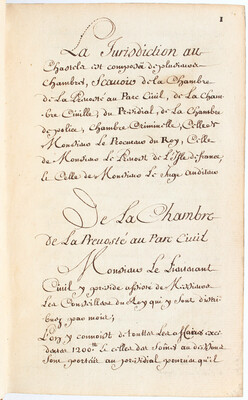 1
La Jurisdiction au
Chastelet est composée de plusieurs
chambres, Scauoir de la Chambre
de La Preuosté au Parc Ciuil, de La Cham-
bre Ciuille, du Présidial, de La Chambre
de police, Chambre Criminelle, Celle de
Monsieur Le Procureur du Roy, Celle
de Monsieur Le Preuost de L'Isle de france,
et Celle de Monsieur Le Juge Auditeur
De La Chambre
de La Preuosté au Parc Ciuil
Monsieur Le Lieutenant
Ciuil y préside assisté de Messieurs
Les Conseillers du Roy qui y sont distri-
buez par mois;
L'on y connoist de touttes Les
1200 et celles des
sont portées au présidial pourueu qu'il